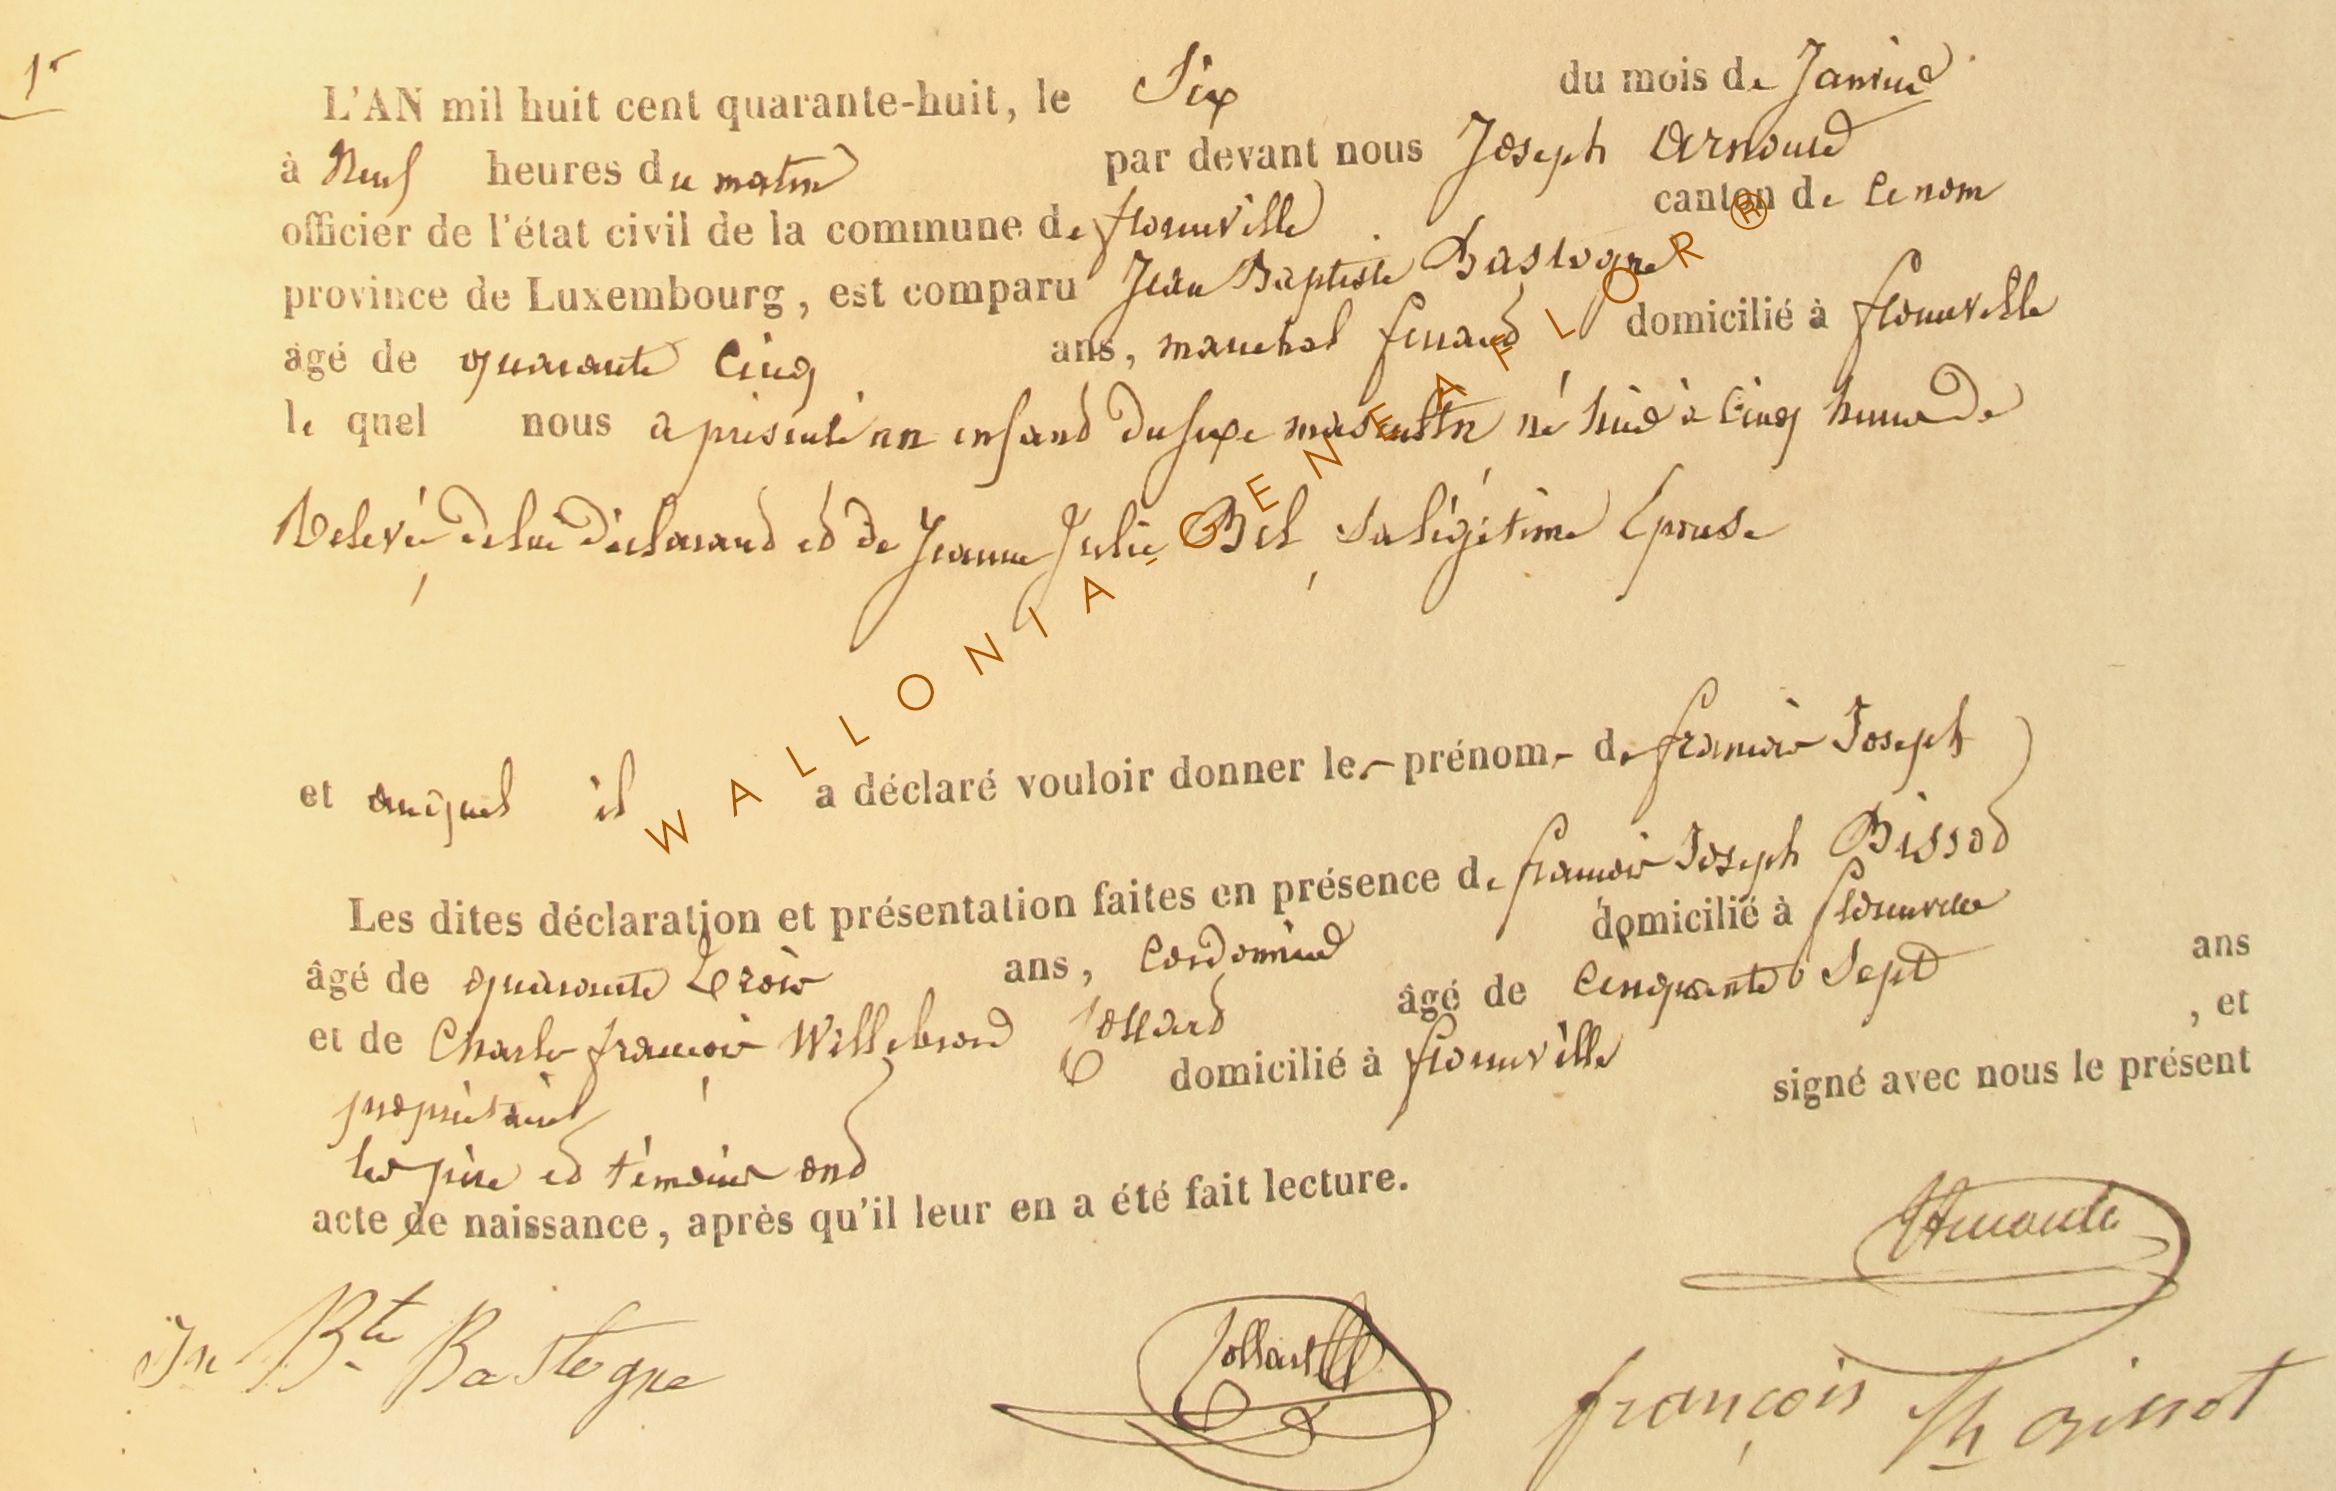 1r
L'AN mil huit cent quarante-huit, le Six du mois de Janvier
à Neuf heures du matin par devant nous Joseph Arnould
officier de l'état civil de la commune de florenville canton de ce nom
province de Luxembourg, est comparu Jean Baptiste Bastogne
âgé de quarante Cinq ans, marechal ferrand domicilié à florenville
le quel nous a présenté un enfand du sexe masculin né hier à Cinq heures de
Relevé de lui déclarand et de Jeanne Julie Bil, sa légitime Epouse
et auquel il a déclaré vouloir donner les prénoms de françois Joseph
Les dites déclaration et présentation faites en présence de françois Joseph Bissot
âgé de quarante trois ans, Cordonnier domicilié à florenville
et de Charles françois Willebrord Jollard âgé de Cinquante Sept ans
propriétaire domicilié à florenville, et
les père et témoins ont signé avec nous le présent
acte de naissance, après qu'il leur en a été fait lecture.
Jn Bte Bastogne
Jollard
françois Jh Bissot
WALLONIA-GENEAFLOR ®